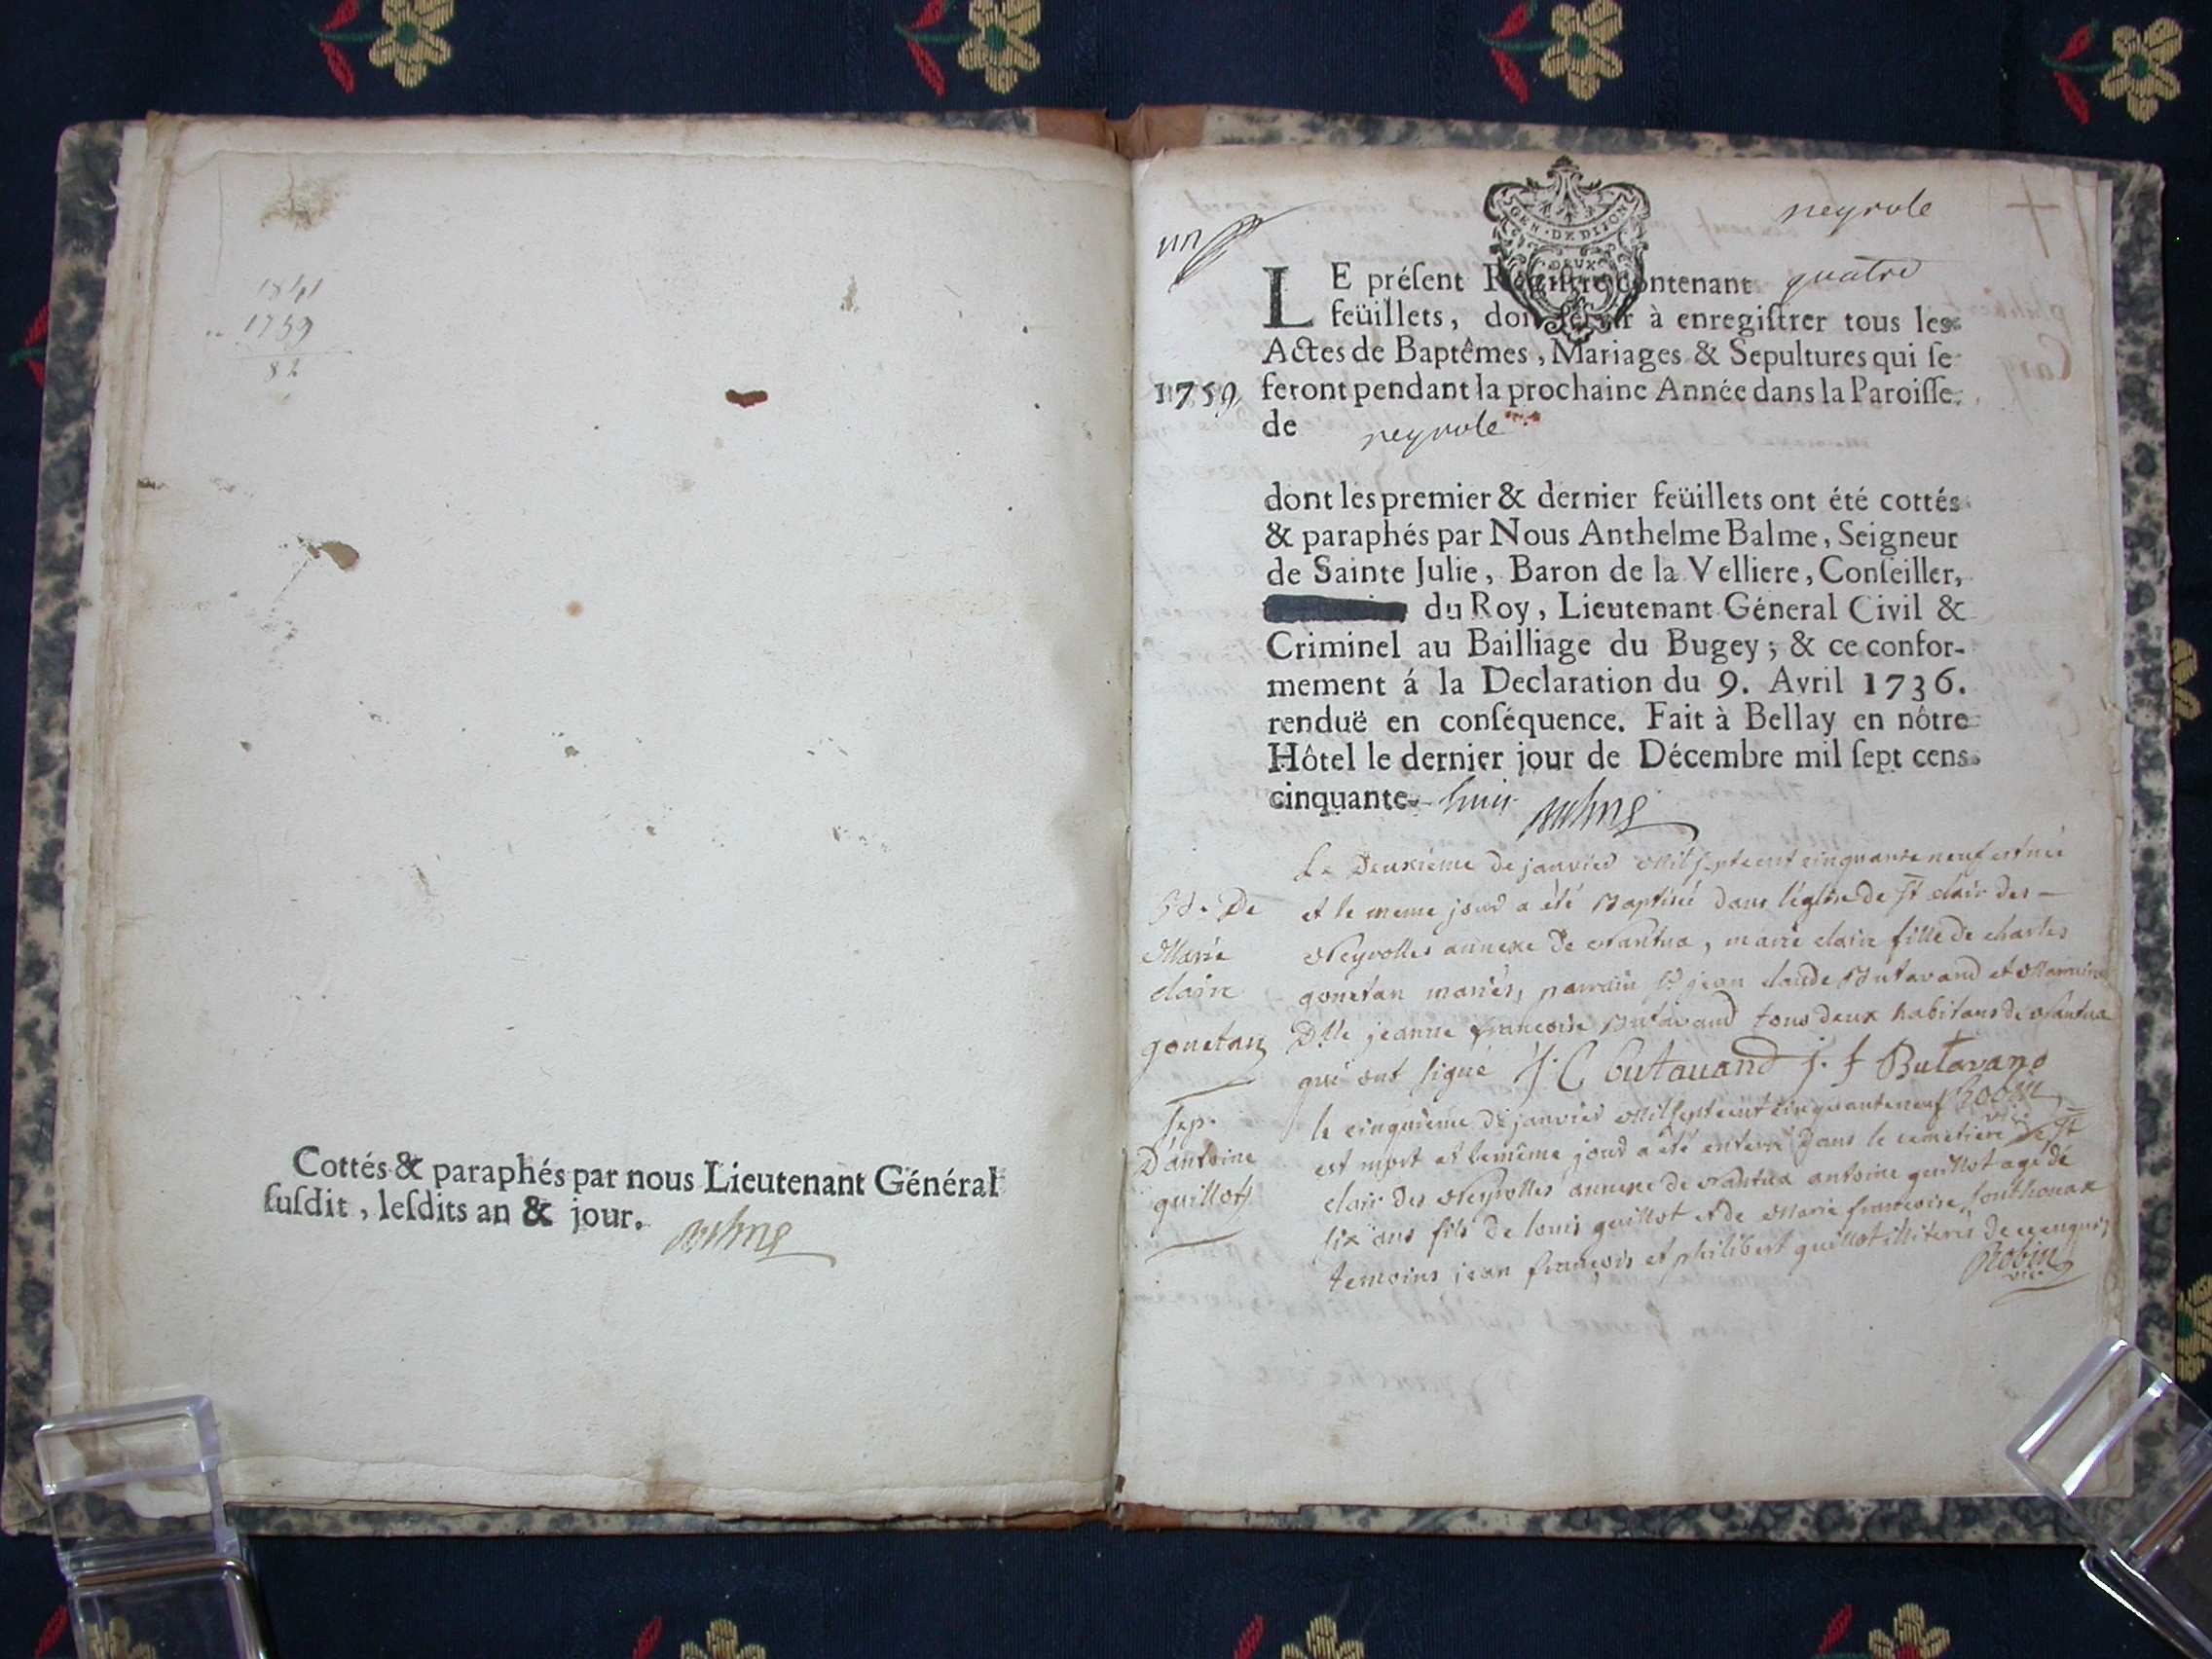 1841
1759
82
Cottés & paraphés par nous Lieutenant Général
ſuſdit, leſdits an & jour.
un
GEN. DE DIJON
DEUX
neyrole
LE préſent Regiſtre contenant quatre
feüillets, doit ſervir à enregiſtrer tous les
Actes de Baptêmes, Mariages & Sepultures qui ſe
1759 feront pendant la prochaine Année dans la Paroiſſe
de neyrole
dont les premier & dernier feüillets ont été cottés
& paraphés par Nous Anthelme Balme, Seigneur
de Sainte Julie, Baron de la Velliere, Conſeiller,
du Roy, Lieutenant Géneral Civil &
Criminel au Bailliage du Bugey; & ce confor-
mement á la Declaration du 9. Avril 1736.
renduë en conſéquence. Fait à Bellay en nôtre
Hôtel le dernier jour de Décembre mil ſept cens
cinquante- huit
De
Marie
claire
gonetan
Le Deuxième de janvier mil sept cent cinquante neuf est née
et le meme jour a été Baptisée dans l'église de st clair des
Neyrolles annexe de Nantua, marie claire fille de charles
gonetan mariés, parrain jean claude Butavand et Marraine
Dlle jeanne françoise Butavand tous deux habitans de Nantua
qui ont signé J. C butauand j. f Butavand
Robin
vic
sep.
D'antoine
guillot
le cinquième de janvier mil sept cent cinquante neuf
est mort et le même jour a été enterré Dans le cemetiere de st
clair des Neyrolles annexe de Nantua antoine guillot agé de
six ans fils de louis guillot et de Marie françoise
temoins jean françois et philibert guillot illiterés de ce enquis
Robin
vic.